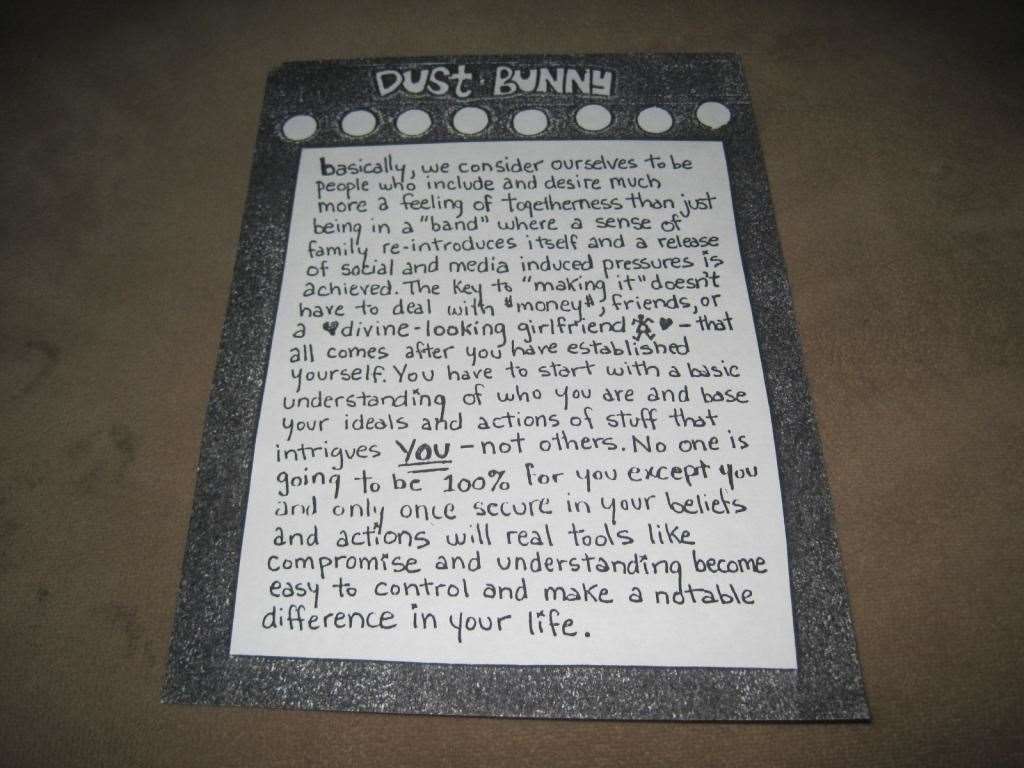 DUST · BUNNY
basically, we consider ourselves to be
people who include and desire much
more a feeling of togetherness than just
being in a "band" where a sense of
family re-introduces itself and a release
of social and media induced pressures is
achieved. The key to "making it" doesn't
have to deal with "money", friends, or
a ♥divine-looking girlfriend ♥ – that
all comes after you have established
yourself. You have to start with a basic
understanding of who you are and base
your ideals and actions of stuff that
intrigues YOU – not others. No one is
going to be 100% for you except you
and only once secure in your beliefs
and actions will real tools like
compromise and understanding become
easy to control and make a notable
difference in your life.